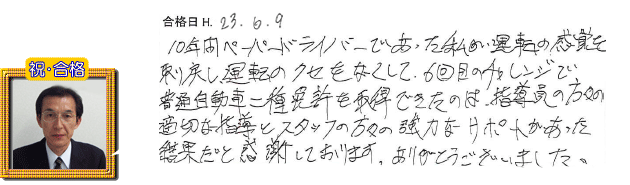 合格日 H. 23.6.9
10年内ペーパードライバーであった私が運転の感覚を
取戻し運転のクセをなくして、6回目のチャレンジで
普通自動車二種免許を取得できたのは、指導員の方々の
適切な指導とスタッフの方々の強力なサポートがあった
結果だと感謝しております。ありがとうございました。
祝・合格